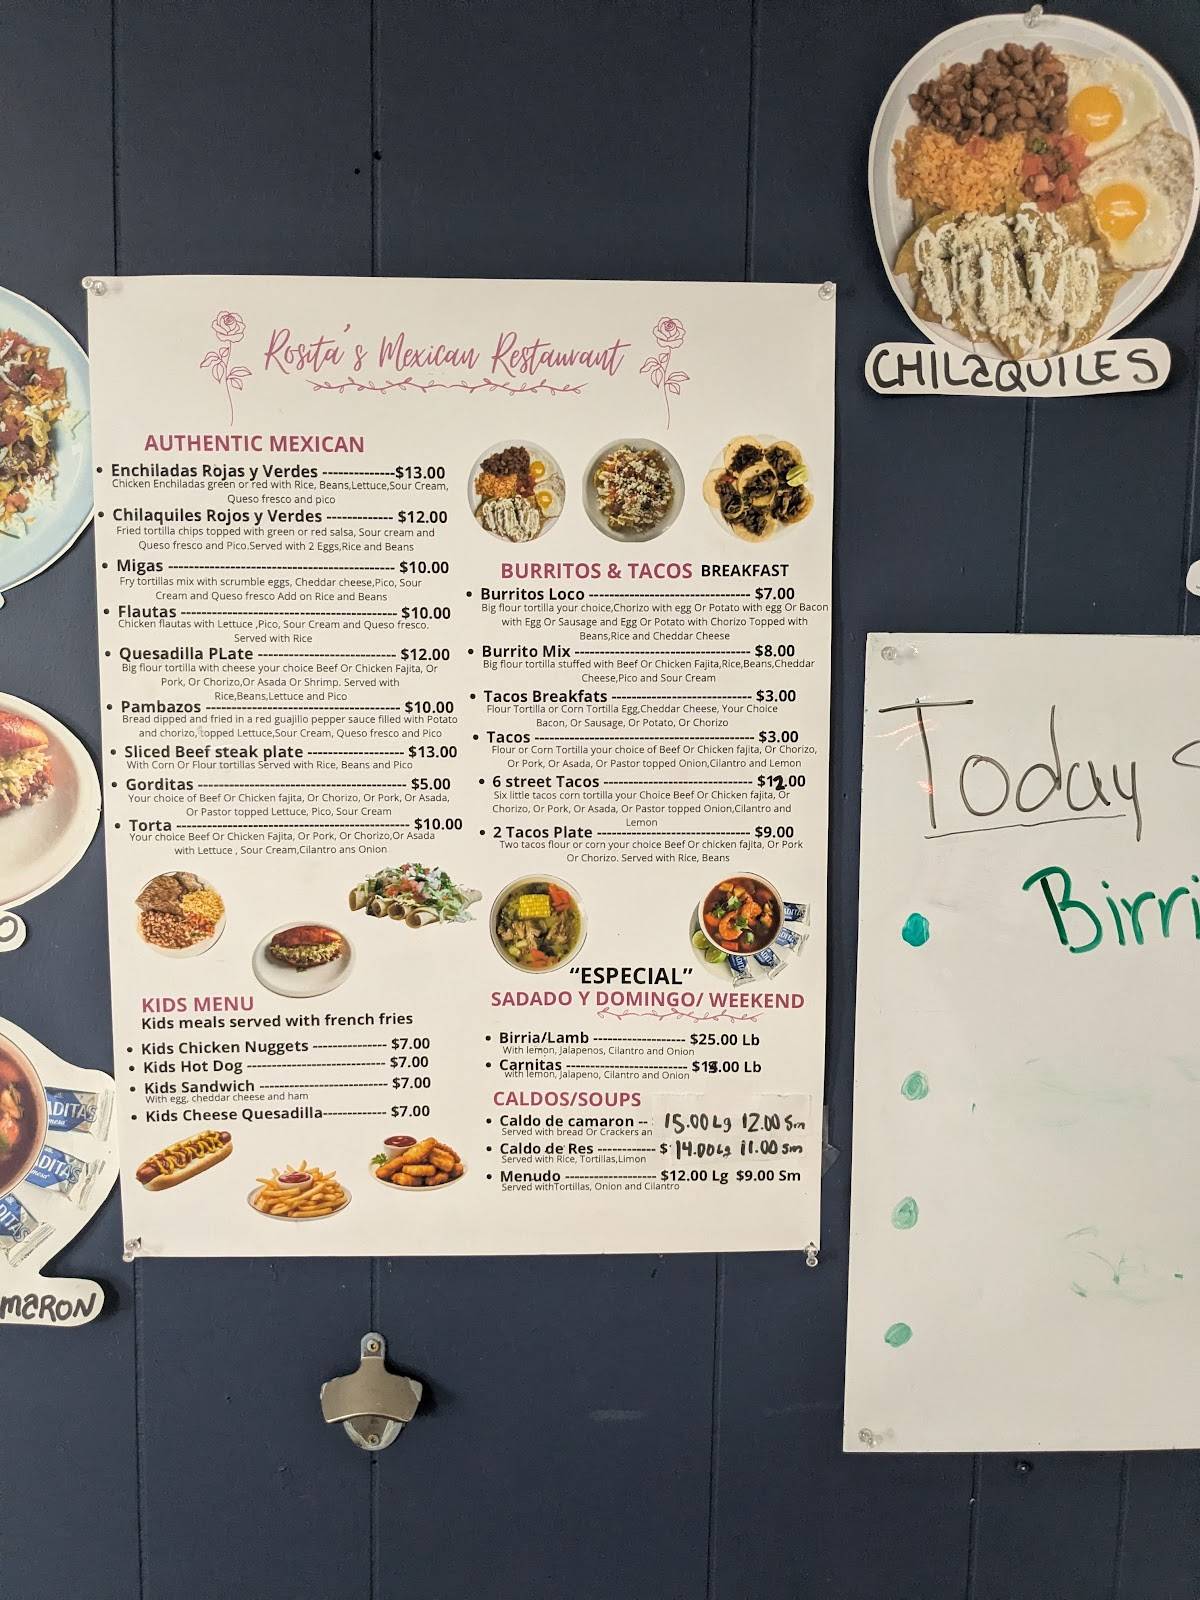 CHILaQUILES
Rosita's Mexican Restaurant
AUTHENTIC MEXICAN
• Enchiladas Rojas y Verdes --------------$13.00
Chicken Enchiladas green or red with Rice, Beans,Lettuce,Sour Cream,
Queso fresco and pico
• Chilaquiles Rojos y Verdes ------------- $12.00
Fried tortilla chips topped with green or red salsa, Sour cream and
Queso fresco and Pico.Served with 2 Eggs,Rice and Beans
• Migas -------------------------------------------- $10.00
Fry tortillas mix with scrumble eggs, Cheddar cheese,Pico, Sour
Cream and Queso fresco Add on Rice and Beans
• Flautas ------------------------------------------ $10.00
Chicken flautas with Lettuce ,Pico, Sour Cream and Queso fresco.
Served with Rice
• Quesadilla PLate --------------------------- $12.00
Big flour tortilla with cheese your choice Beef Or Chicken Fajita, Or
Pork, Or Chorizo,Or Asada Or Shrimp. Served with
Rice,Beans,Lettuce and Pico
• Pambazos -------------------------------------- $10.00
Bread dipped and fried in a red guajillo pepper sauce filled with Potato
and chorizo, topped Lettuce,Sour Cream, Queso fresco and Pico
• Sliced Beef steak plate ------------------- $13.00
With Corn Or Flour tortillas Served with Rice, Beans and Pico
• Gorditas ------------------------------------------ $5.00
Your choice of Beef Or Chicken fajita, Or Chorizo, Or Pork, Or Asada,
Or Pastor topped Lettuce, Pico, Sour Cream
• Torta --------------------------------------------- $10.00
Your choice Beef Or Chicken Fajita, Or Pork, Or Chorizo,Or Asada
with Lettuce , Sour Cream,Cilantro ans Onion
KIDS MENU
Kids meals served with french fries
• Kids Chicken Nuggets --------------- $7.00
• Kids Hot Dog ---------------------------- $7.00
• Kids Sandwich -------------------------- $7.00
With egg, cheddar cheese and ham
• Kids Cheese Quesadilla------------- $7.00
BURRITOS & TACOS BREAKFAST
• Burritos Loco --------------------------------- $7.00
Big flour tortilla your choice,Chorizo with egg Or Potato with egg Or Bacon
with Egg Or Sausage and Egg Or Potato with Chorizo Topped with
Beans,Rice and Cheddar Cheese
• Burrito Mix ----------------------------------- $8.00
Big flour tortilla stuffed with Beef Or Chicken Fajita,Rice,Beans,Cheddar
Cheese,Pico and Sour Cream
• Tacos Breakfats ---------------------------- $3.00
Flour Tortilla or Corn Tortilla Egg,Cheddar Cheese, Your Choice
Bacon, Or Sausage, Or Potato, Or Chorizo
• Tacos -------------------------------------------- $3.00
Flour or Corn Tortilla your choice of Beef Or Chicken fajita, Or Chorizo,
Or Pork, Or Asada, Or Pastor topped Onion,Cilantro and Lemon
• 6 street Tacos ------------------------------- $12.00
Six little tacos corn tortilla your Choice Beef Or Chicken fajita, Or
Chorizo, Or Pork, Or Asada, Or Pastor topped Onion,Cilantro and
Lemon
• 2 Tacos Plate ------------------------------- $9.00
Two tacos flour or corn your choice Beef Or chicken fajita, Or Pork
Or Chorizo. Served with Rice, Beans
"ESPECIAL"
SADADO Y DOMINGO/ WEEKEND
• Birria/Lamb ------------------- $25.00 Lb
With lemon, Jalapenos, Cilantro and Onion
• Carnitas ------------------------- .00 Lb
with lemon, Jalapeno, Cilantro and Onion
CALDOS/SOUPS
• Caldo de camaron -- 15.00 Lg 12.00 Sm
Served with bread Or Crackers an
• Caldo de Res ------------ $ 14.00 Lg 11.00 sm
Served with Rice, Tortillas,Limon
• Menudo ------------------- $12.00 Lg $9.00 Sm
Served withTortillas, Onion and Cilantro
Today
Birri
O
maRON